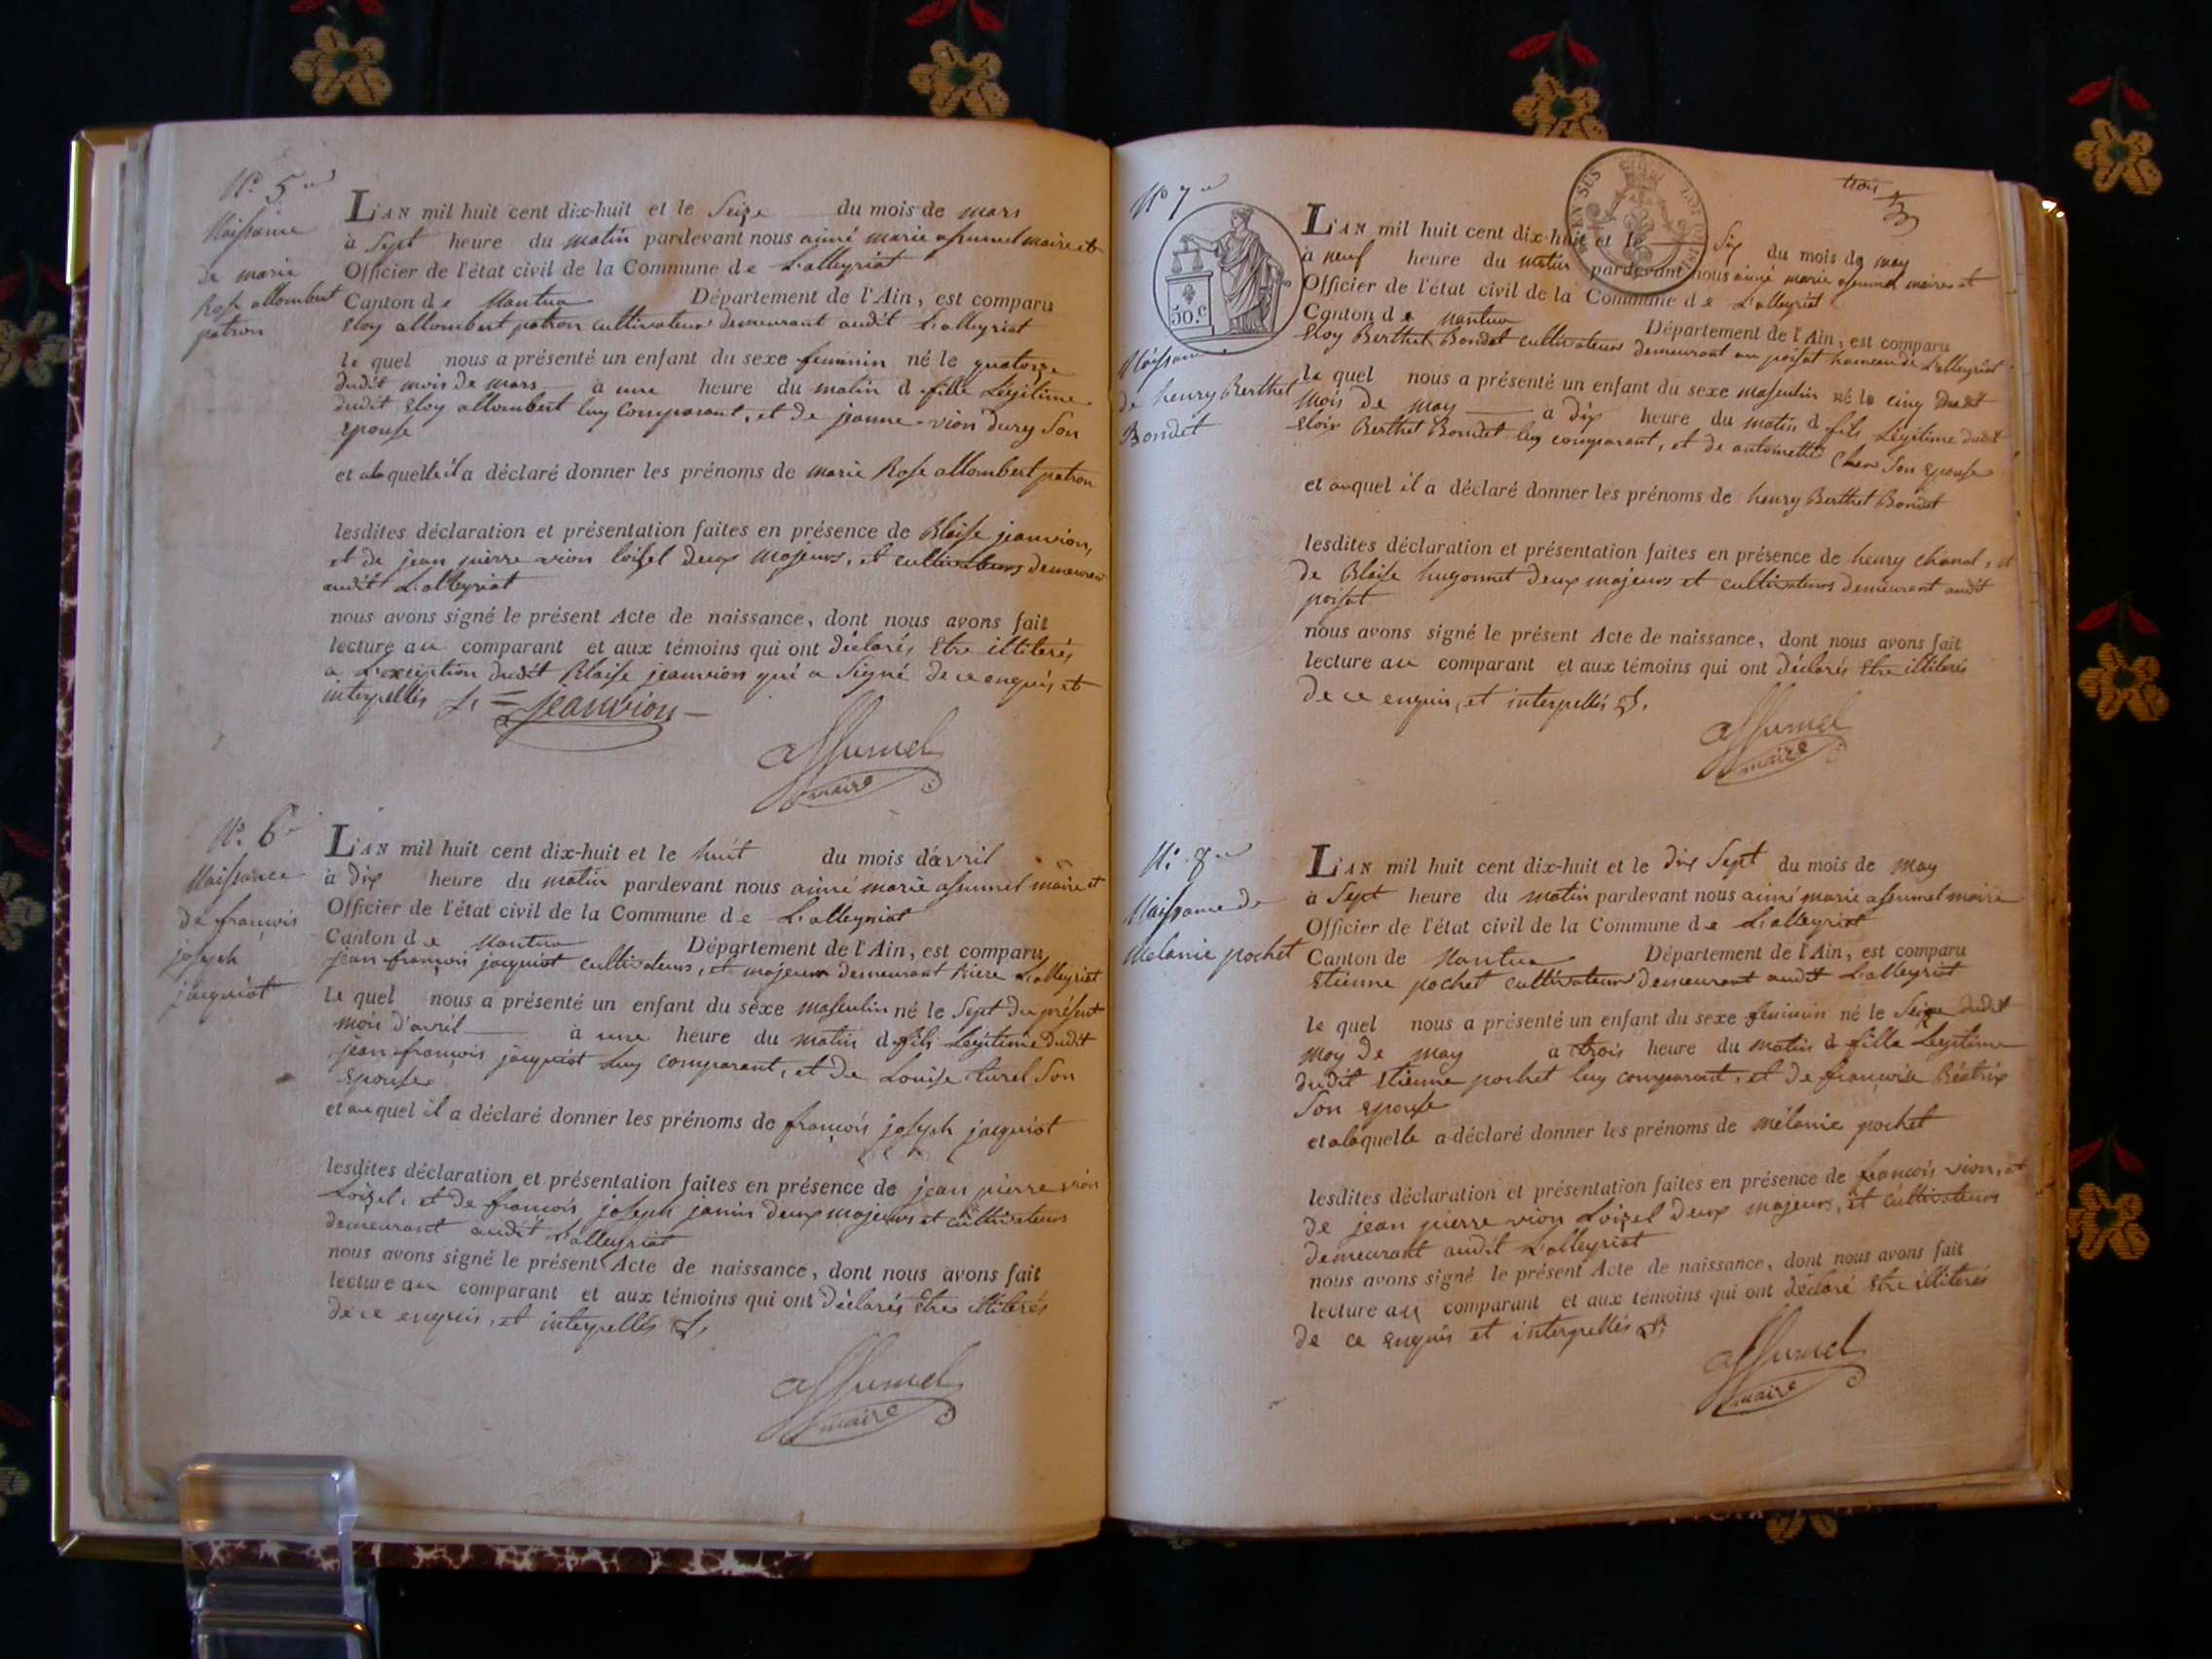 N°. 5
Naissance
de marie
Rose allombert
patron
L'AN mil huit cent dix-huit et le Seize du mois de mars
à Sept heure du matin pardevant nous aimé marie assumel maire et
Officier de l'état civil de la Commune de Lalleyriat
Canton de Nantua Département de l'Ain, est comparu
Eloy allombert patron cultivateur demeurant audit Lalleyriat
le quel nous a présenté un enfant du sexe feminin né le quatorze
dudit mois de mars à une heure du matin d fille Légitime
dudit Eloy allombert luy comparant, et de jeanne vion dury Son
Epouse
et alaquelle il a déclaré donner les prénoms de marie Rose allombert patron
lesdites déclaration et présentation faites en présence de Blaise jeanvion,
et de jean pierre vion loisel deux majeurs, et cultivateurs demeurant
audit Lalleyriat
nous avons signé le présent Acte de naissance, dont nous avons fait
lecture au comparant et aux témoins qui ont déclarés Etre illiterés
a L'exception dudit Blaise jeanvion qui a Signé de ce enquis et
interpellés
jeanvion
assumel
maire
N°. 6
Naissance
de françois
joseph
jacquiot
L'AN mil huit cent dix-huit et le huit du mois d'avril
à dix heure du matin pardevant nous aimé marie assumel maire et
Officier de l'état civil de la Commune de Lalleyriat
Canton de Nantua Département de l'Ain, est comparu
jean françois jacquiot cultivateur, et majeur demeurant Lalleyriat
Le quel nous a présenté un enfant du sexe masculin né le Sept du présent
mois d'avril à une heure du matin d fils Légitime dudit
jean françois jacquiot luy comparant, et de Louise turel Son
Epouse
et auquel il a déclaré donner les prénoms de françois joseph jacquiot
lesdites déclaration et présentation faites en présence de jean pierre vion
Loisel, et de françois joseph janin deux majeurs et cultivateurs
demeurant audit Lalleyriat
nous avons signé le présent Acte de naissance, dont nous avons fait
lecture au comparant et aux témoins qui ont déclarés Etre illiterés
de ce enquis, et interpellés
assumel
maire
trois
3
N° 7
50.c
EN SUS
Naissance
de henry Berthet
Bondet
L'AN mil huit cent dix-huit et le Six du mois de may
à neuf heure du matin pardevant nous aimé marie assumel maire et
Officier de l'état civil de la Commune de Lalleyriat
Canton de Nantua Département de l'Ain, est comparu
Eloy Berthet Bondet cultivateur demeurant au poisat hameau de Lalleyriat
le quel nous a présenté un enfant du sexe masculin né le cinq dudit
mois de may à dix heure du matin d fils Légitime dudit
Eloix Berthet Bondet luy comparant, et de antoinette Son Epouse
et auquel il a déclaré donner les prénoms de henry Berthet Bondet
lesdites déclaration et présentation faites en présence de henry chanal, et
de Blaise hugonnet deux majeurs et cultivateurs demeurant audit
poisat
nous avons signé le présent Acte de naissance, dont nous avons fait
lecture au comparant et aux témoins qui ont déclarés Etre illiterés
de ce enquis, et interpellés
assumel
maire
N°. 8
Naissance de
Melanie pochet
L'AN mil huit cent dix-huit et le dix Sept du mois de may
à Sept heure du matin pardevant nous aimé marie assumel maire
Officier de l'état civil de la Commune de Lalleyriat
Canton de Nantua Département de l'Ain, est comparu
Etienne pochet cultivateur demeurant audit Lalleyriat
le quel nous a présenté un enfant du sexe feminin né le Seize dudit
moy de may à trois heure du matin d fille Légitime
dudit Etienne pochet luy comparant, et de françoise Béatrix
Son Epouse
et alaquelle a déclaré donner les prénoms de mélanie pochet
lesdites déclaration et présentation faites en présence de françois vion, et
de jean pierre vion Loisel deux majeurs, et cultivateurs
demeurant audit Lalleyriat
nous avons signé le présent Acte de naissance, dont nous avons fait
lecture au comparant et aux témoins qui ont déclaré Etre illiterés
de ce enquis et interpellés
assumel
maire